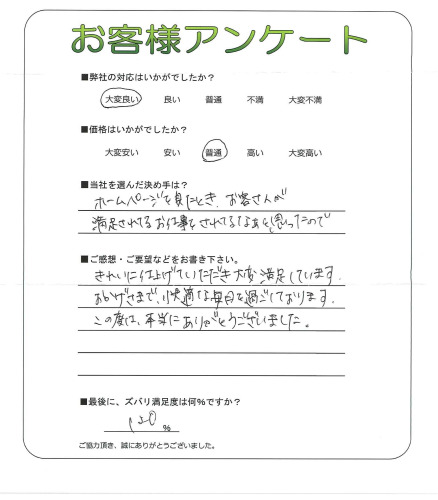 お客様アンケート
■弊社の対応はいかがでしたか?
大変良い 良い 普通 不満 大変不満
■価格はいかがでしたか?
大変安い 安い 普通 高い 大変高い
■当社を選んだ決め手は?
ホームページを見たとき、お客さんが
満足されてるお仕事をされてるなあと思ったので
■ご感想・ご要望などをお書き下さい。
きれいに仕上げていただき大変満足しています。
おかげさまで、快適な毎日を過ごしております。
この度は、本当にありがとうございました。
■最後に、ズバリ満足度は何%ですか?
150 %
ご協力頂き、誠にありがとうございました。